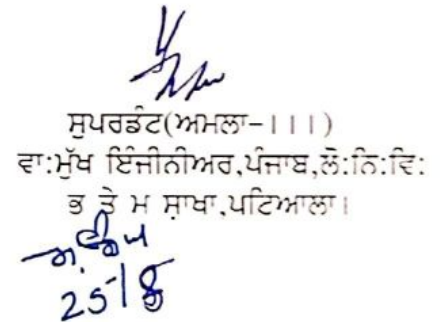 ਸੁਪਰਡੰਟ(ਅਮਲਾ-।।।)
ਵਾ:ਮੁੱਖ ਇੰਜੀਨੀਅਰ,ਪੰਜਾਬ,ਲੋ:ਨਿ:ਵਿ:
ਭ ਤੇ ਮ ਸ਼ਾਖਾ,ਪਟਿਆਲਾ।
25/8